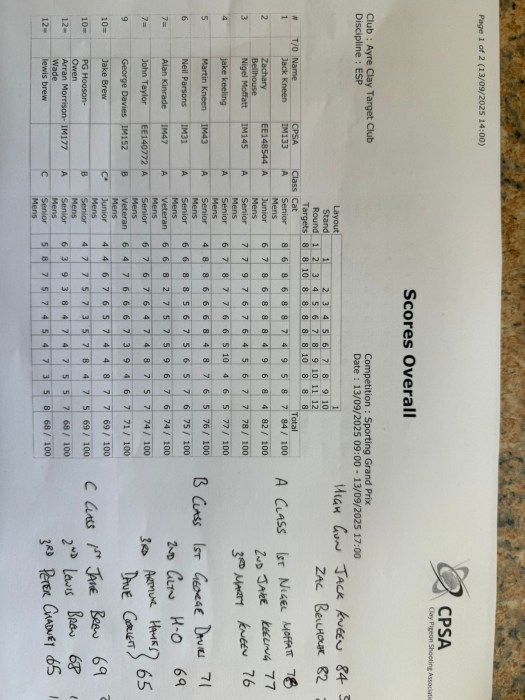 Page 1 of 2 (13/09/2025 14:00)
CPSA
Clay Pigeon Shooting Association
Scores Overall
Club : Ayre Clay Target Club
Competition : Sporting Grand Prix
Discipline : ESP
Date : 13/09/2025 09:00 - 13/09/2025 17:00
Layout 1
Stand 1 2 3 4 5 6 7 8 9 10
Round 1 2 3 4 5 6 7 8 9 10 11 12
Targets 8 8 10 8 8 8 8 8 10 8 8 8
# T/O Name CPSA Class Cat Total
1 Jack Kneen IM133 A Senior Mens 8 6 8 6 8 8 7 4 9 5 8 7 84 / 100
2 Zachary Bellhouse EE148544 A Junior Mens 6 7 8 6 8 8 8 4 9 6 8 4 82 / 100
3 Nigel Moffatt IM145 A Senior Mens 7 7 9 7 6 7 6 4 5 6 7 7 78 / 100
4 jake keeling A Senior Mens 6 7 8 7 7 6 6 5 10 4 6 5 77 / 100
5 Martin Kneen IM43 A Senior Mens 4 8 8 6 6 6 8 4 8 7 6 5 76 / 100
6 Neil Parsons IM31 A Senior Mens 6 6 8 8 5 6 7 5 6 5 7 6 75 / 100
7= Alan Kinrade IM47 A Veteran Mens 6 6 8 2 7 5 7 5 9 6 7 6 74 / 100
7= John Taylor EE140772 A Senior Mens 6 7 6 7 6 4 7 4 8 7 5 7 74 / 100
9 George Davies IM152 B Veteran Mens 6 4 7 6 6 6 7 3 9 4 6 7 71 / 100
10= Jake Brew C* Junior Mens 4 4 6 7 6 5 7 4 4 8 7 7 69 / 100
10= PG Hooson-Owen B Senior Mens 4 7 7 5 7 3 5 7 8 4 7 5 69 / 100
12= Arran Morrison-Wade IM177 A Senior Mens 6 3 9 3 8 4 7 4 7 5 5 7 68 / 100
12= lewis brew C Senior Mens 5 8 7 5 7 4 5 4 7 3 5 8 68 / 100
HIGH GUN JACK KNEEN 84
ZAC BELLHOUSE 82
A CLASS 1ST NIGEL MOFFATT 78
2ND JAKE KEELING 77
3RD MARTY KNEEN 76
B CLASS 1ST GEORGE DAVIES 71
69
3RD ARTHUR
DAVE
65
C CLASS 1ST JAKE BREW 69
2ND LEWIS BREW 68
3RD PETER 65